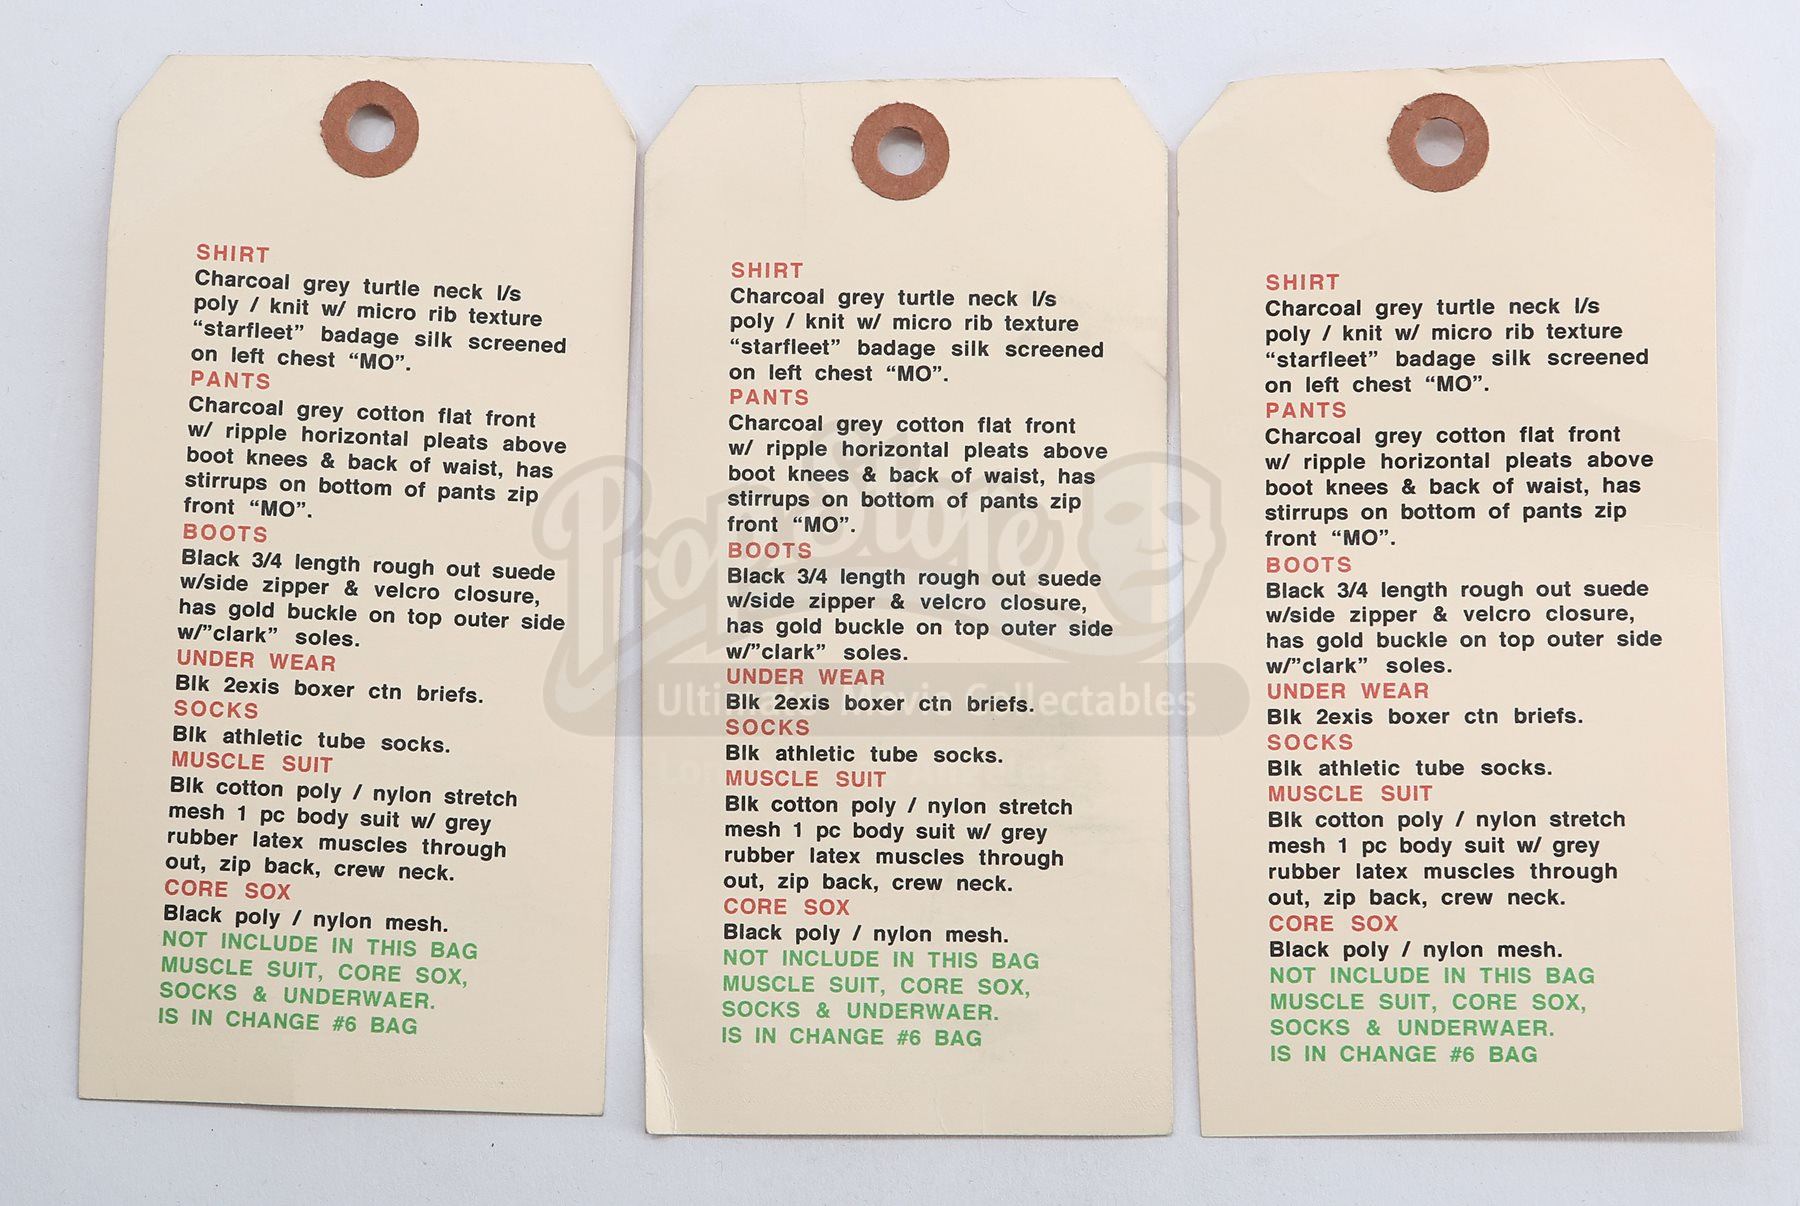 SHIRT
Charcoal grey turtle neck l/s
poly / knit w/ micro rib texture
“starfleet” badage silk screened
on left chest “MO”.
PANTS
Charcoal grey cotton flat front
w/ ripple horizontal pleats above
boot knees & back of waist, has
stirrups on bottom of pants zip
front “MO”.
BOOTS
Black 3/4 length rough out suede
w/side zipper & velcro closure,
has gold buckle on top outer side
w/”clark” soles.
UNDER WEAR
Blk 2exis boxer ctn briefs.
SOCKS
Blk athletic tube socks.
MUSCLE SUIT
Blk cotton poly / nylon stretch
mesh 1 pc body suit w/ grey
rubber latex muscles through
out, zip back, crew neck.
CORE SOX
Black poly / nylon mesh.
NOT INCLUDE IN THIS BAG
MUSCLE SUIT, CORE SOX,
SOCKS & UNDERWAER.
IS IN CHANGE #6 BAG
SHIRT
Charcoal grey turtle neck l/s
poly / knit w/ micro rib texture
“starfleet” badage silk screened
on left chest “MO”.
PANTS
Charcoal grey cotton flat front
w/ ripple horizontal pleats above
boot knees & back of waist, has
stirrups on bottom of pants zip
front “MO”.
BOOTS
Black 3/4 length rough out suede
w/side zipper & velcro closure,
has gold buckle on top outer side
w/”clark” soles.
UNDER WEAR
Blk 2exis boxer ctn briefs.
SOCKS
Blk athletic tube socks.
MUSCLE SUIT
Blk cotton poly / nylon stretch
mesh 1 pc body suit w/ grey
rubber latex muscles through
out, zip back, crew neck.
CORE SOX
Black poly / nylon mesh.
NOT INCLUDE IN THIS BAG
MUSCLE SUIT, CORE SOX,
SOCKS & UNDERWAER.
IS IN CHANGE #6 BAG
SHIRT
Charcoal grey turtle neck l/s
poly / knit w/ micro rib texture
“starfleet” badage silk screened
on left chest “MO”.
PANTS
Charcoal grey cotton flat front
w/ ripple horizontal pleats above
boot knees & back of waist, has
stirrups on bottom of pants zip
front “MO”.
BOOTS
Black 3/4 length rough out suede
w/side zipper & velcro closure,
has gold buckle on top outer side
w/”clark” soles.
UNDER WEAR
Blk 2exis boxer ctn briefs.
SOCKS
Blk athletic tube socks.
MUSCLE SUIT
Blk cotton poly / nylon stretch
mesh 1 pc body suit w/ grey
rubber latex muscles through
out, zip back, crew neck.
CORE SOX
Black poly / nylon mesh.
NOT INCLUDE IN THIS BAG
MUSCLE SUIT, CORE SOX,
SOCKS & UNDERWAER.
IS IN CHANGE #6 BAG
PropStore
Ultimate Movie Collectables